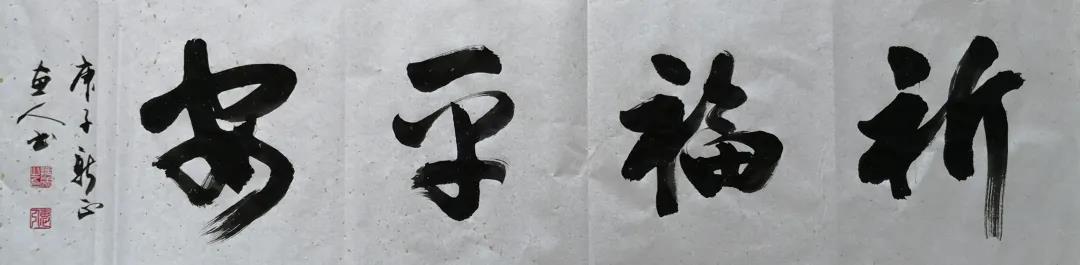 祈福平安
庚子新正
直人书